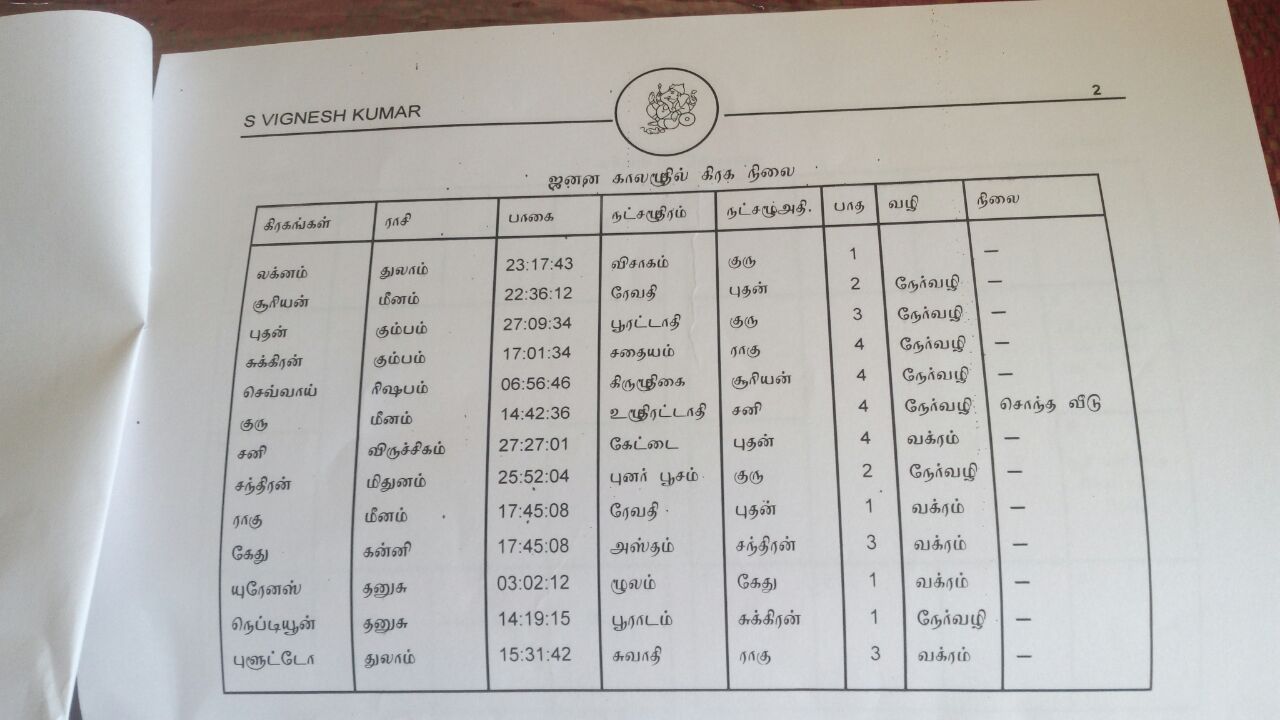 S VIGNESH KUMAR
2
ஜனன காலத்தில் கிரக நிலை
கிரகங்கள் ராசி பாகை நட்சத்திரம் நட்சத்அதி. பாத வழி நிலை
லக்னம் துலாம் 23:17:43 விசாகம் குரு 1 —
சூரியன் மீனம் 22:36:12 ரேவதி புதன் 2 நேர்வழி —
புதன் கும்பம் 27:09:34 பூரட்டாதி குரு 3 நேர்வழி —
சுக்கிரன் கும்பம் 17:01:34 சதையம் ராகு 4 நேர்வழி —
செவ்வாய் ரிஷபம் 06:56:46 கிருத்திகை சூரியன் 4 நேர்வழி —
குரு மீனம் 14:42:36 உத்திரட்டாதி சனி 4 நேர்வழி சொந்த வீடு
சனி விருச்சிகம் 27:27:01 கேட்டை புதன் 4 வக்ரம் —
சந்திரன் மிதுனம் 25:52:04 புனர் பூசம் குரு 2 நேர்வழி —
ராகு மீனம் 17:45:08 ரேவதி புதன் 1 வக்ரம் —
கேது கன்னி 17:45:08 அஸ்தம் சந்திரன் 3 வக்ரம் —
யுரேனஸ் தனுசு 03:02:12 மூலம் கேது 1 வக்ரம் —
நெப்டியூன் தனுசு 14:19:15 பூராடம் சுக்கிரன் 1 நேர்வழி —
புளூட்டோ துலாம் 15:31:42 சுவாதி ராகு 3 வக்ரம் —